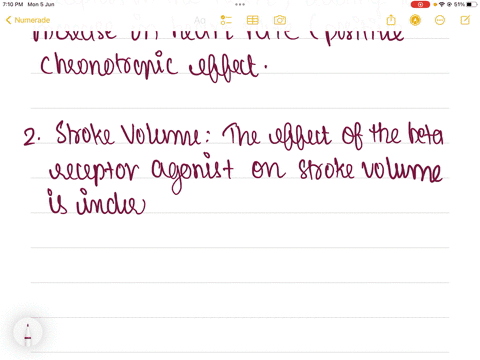 7:10 PM Mon 5 Jun
51%
Numerade
Aa
increase in heart rate (positive
cheonotropic effect.
2. Stroke Volume: The effect of the beta
receptor agonist on stroke volume
is indu